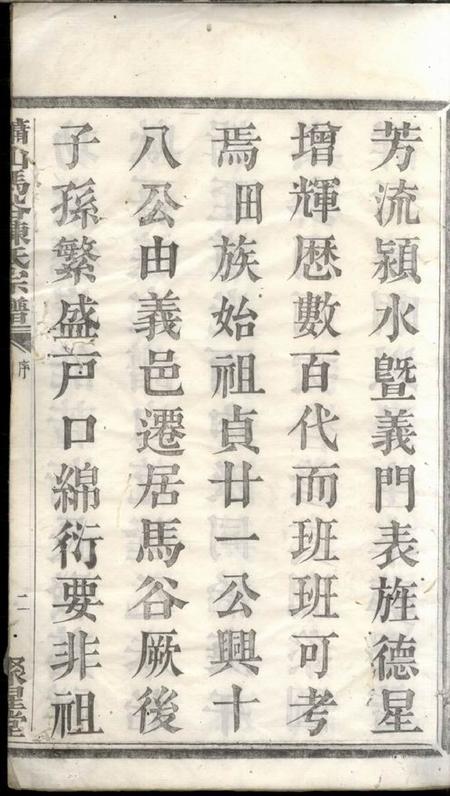 芳流潁水曁義門表旌德星
增輝歴數百代而班班可考
焉田族始祖貞廿一公興十
八公由義邑遷居馬谷厥後
子孫繁盛戸口綿衍要非祖
蕭山馬谷陳氏宗譜 序 二 聚星堂